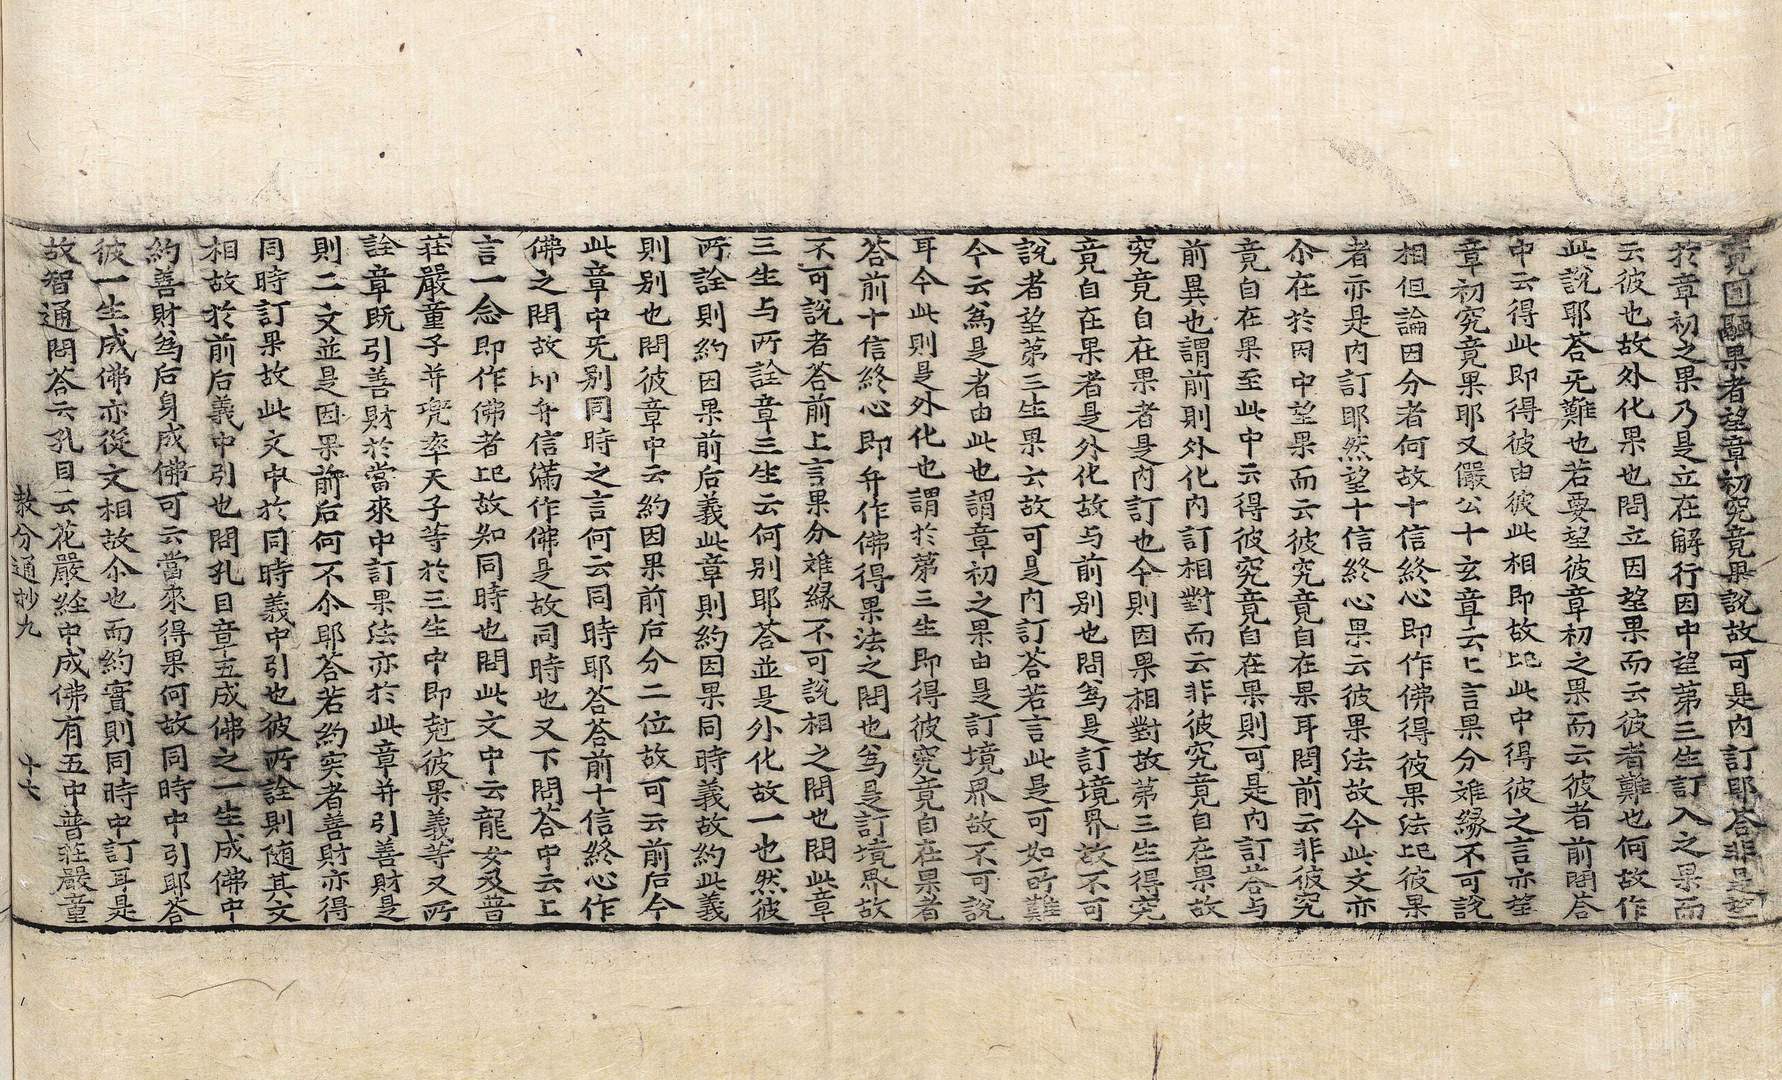 竟因融果者望章初究竟果說故可是内訂耶荅非是望
扵章初之果乃是立在解行因中望第三生訂入之果而
云彼也故外化果也問立因望果而云彼者難也何故作
此說耶荅无難也若要望彼章初之果而云彼者前問荅
中云得此即得彼由彼此相即故比此中得彼之言亦望
章初究竟果耶又儼公十玄章云上言果分难縁不可說
相但論因分者何故十信終心即作佛得彼果法比彼果
者亦是内訂耶然望十信終心果云彼果法故今此文亦
尒在扵因中望果而云彼究竟自在果耳問前云非彼究
竟自在果至此中云得彼究竟自在果則可是内訂荅与
前異也謂前則外化内訂相對而云非彼究竟自在果故
究竟自在果者是内訂也今則因果相對故第三生得究
竟自在果者是外化故与前别也問為是訂境界故不可
說者望第三生果云故可是内訂荅若言此是可如所難
今云為是者由此也謂章初之果由是訂境界故不可說
耳今此則是外化也謂扵第三生即得彼究竟自在果者
荅前十信終心即弁作佛得果法之問也為是訂境界故
不可說者荅前上言果分难縁不可說相之問也問此章
三生与所詮章三生云何别耶荅並是外化故一也然彼
所詮則約因果前后義此章則約因果同時義故約此義
則别也問彼章中云約因果前后分二位故可云前后今
此章中旡别同時之言何云同時耶荅荅前十信終心作
佛之問故即弁信滿作佛是故同時也又下問荅中云上
言一念即作佛者比故知同時也問此文中云龍女及普
莊嚴童子并兠率天子等扵三生中即尅彼果義等又所
詮章旣引善財扵當來中訂果法亦扵此章并引善財是
則二文並是因果前后何不尒耶荅若約实者善財亦得
同時訂果故此文中扵同時義中引也彼所詮則随其文
相故扵前后義中引也問孔目章五成佛之一生成佛中
約善財為后身成佛可云當來得果何故同時中引耶荅
彼一生成佛亦從文相故尒也而約實則同時中訂耳是
故智通問荅云孔目云花嚴経中成佛有五中普莊嚴童
教分通抄九　十六